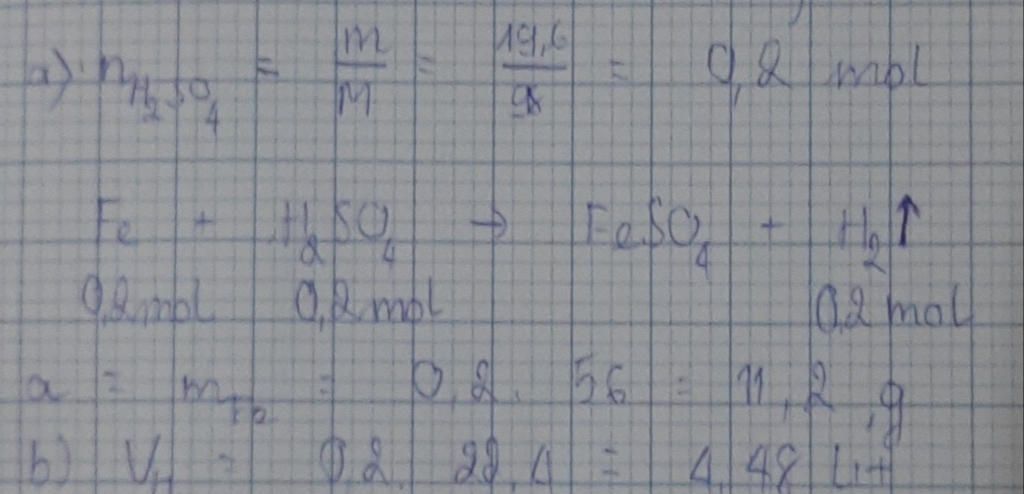 a) n H₂SO₄ = m/M = 19,6/98 = 0,2 mol
Fe + H₂SO₄ → FeSO₄ + H₂↑
0,2 mol 0,2 mol 0,2 mol
a = m Fe = 0,2 . 56 = 11,2 g
b) V H = 0,2 . 22,4 = 4,48 Lit